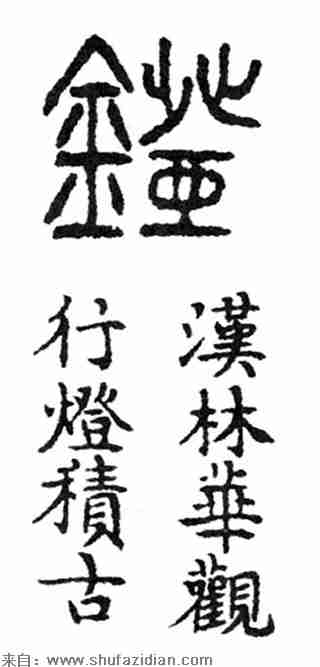 鐙
漢林華觀
行燈積古
来自：www.shufazidian.com